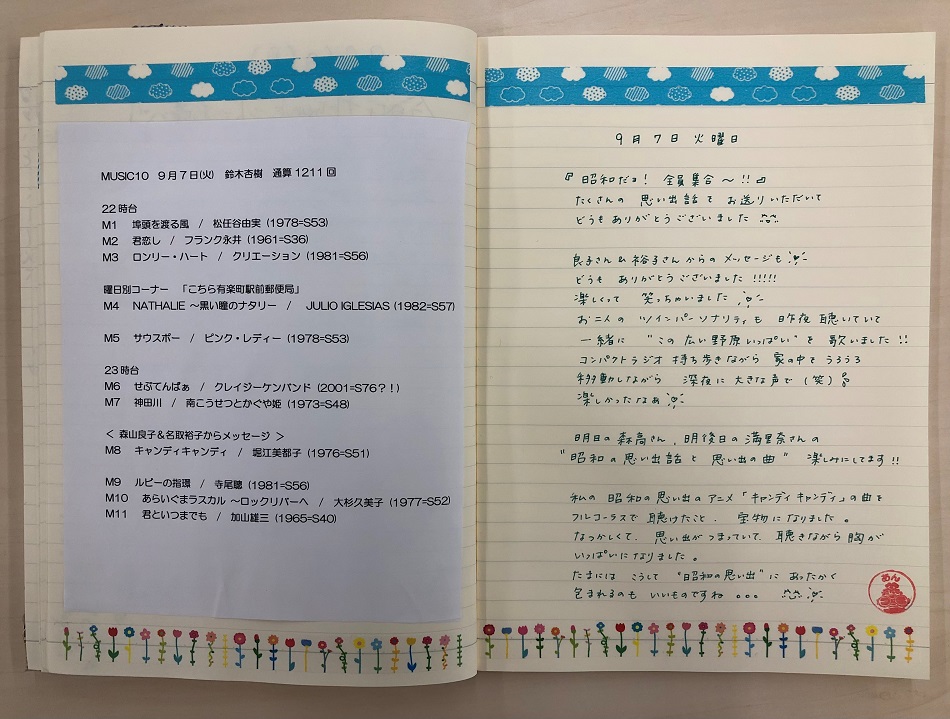 MUSIC10 9月7日(火) 鈴木杏樹 通算1211回
22時台
M1 埠頭を渡る風 / 松任谷由実 (1978=S53)
M2 君恋し / フランク永井 (1961=S36)
M3 ロンリー・ハート / クリエーション (1981=S56)
曜日別コーナー 「こちら有楽町駅前郵便局」
M4 NATHALIE ～黒い瞳のナタリー / JULIO IGLESIAS (1982=S57)
M5 サウスポー / ピンク・レディー (1978=S53)
23時台
M6 せぷてんばぁ / クレイジーケンバンド (2001=S76？！)
M7 神田川 / 南こうせつとかぐや姫 (1973=S48)
＜ 森山良子＆名取裕子からメッセージ ＞
M8 キャンディキャンディ / 堀江美都子 (1976=S51)
M9 ルビーの指環 / 寺尾聰 (1981=S56)
M10 あらいぐまラスカル ～ロックリバーへ / 大杉久美子 (1977=S52)
M11 君といつまでも / 加山雄三 (1965=S40)
9月7日 火曜日
『昭和だョ! 全員集合～!!』
たくさんの 思い出話で お送りいただいて
どうもありがとうございました
良子さん&裕子さんからのメッセージも
どうも ありがとうございました!!!!!
楽しくって 笑っちゃいました
お二人の ツインパーソナリティも 昨夜聴いていて
一緒に "この広い野原いっぱい"を 歌いました!!
コンパクトラジオ 持ち歩きながら 家の中で うろうろ
移動しながら 深夜に 大きな声で(笑)
楽しかったなぁ
明日の森高さん、明後日の満里奈さんの
"昭和の思い出話と思い出の曲" 楽しみにしてます!!
私の 昭和の思い出のアニメ「キャンディキャンディ」の曲を
フルコーラスで 聴けたこと、宝物になりました。
なつかしくて、思い出がつまっていて、聴きながら胸が
いっぱいになりました。
たまには こうして "昭和の思い出"に あったかく
包まれるのも いいものですね。。。
あん